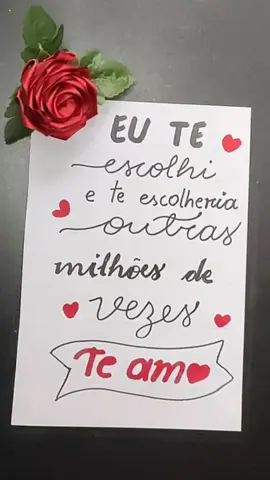 EU TE
escolhi
e te escolheria
outras
milhões de
vezes
Te am❤